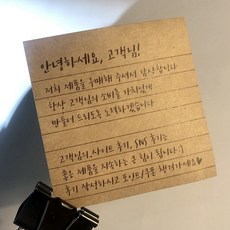 안녕하세요, 고객님!
저희 제품을 구매해 주셔서 감사합니다
항상 고객님의 소비를 가치있게
만들어 드리도록 노력하겠습니다
고객님의 사이트 후기, SNS 후기는
좋은 제품을 지속하는 큰 힘이 됩니다 :)
후기 작성하시고 포인트/쿠폰 챙겨가세요♥